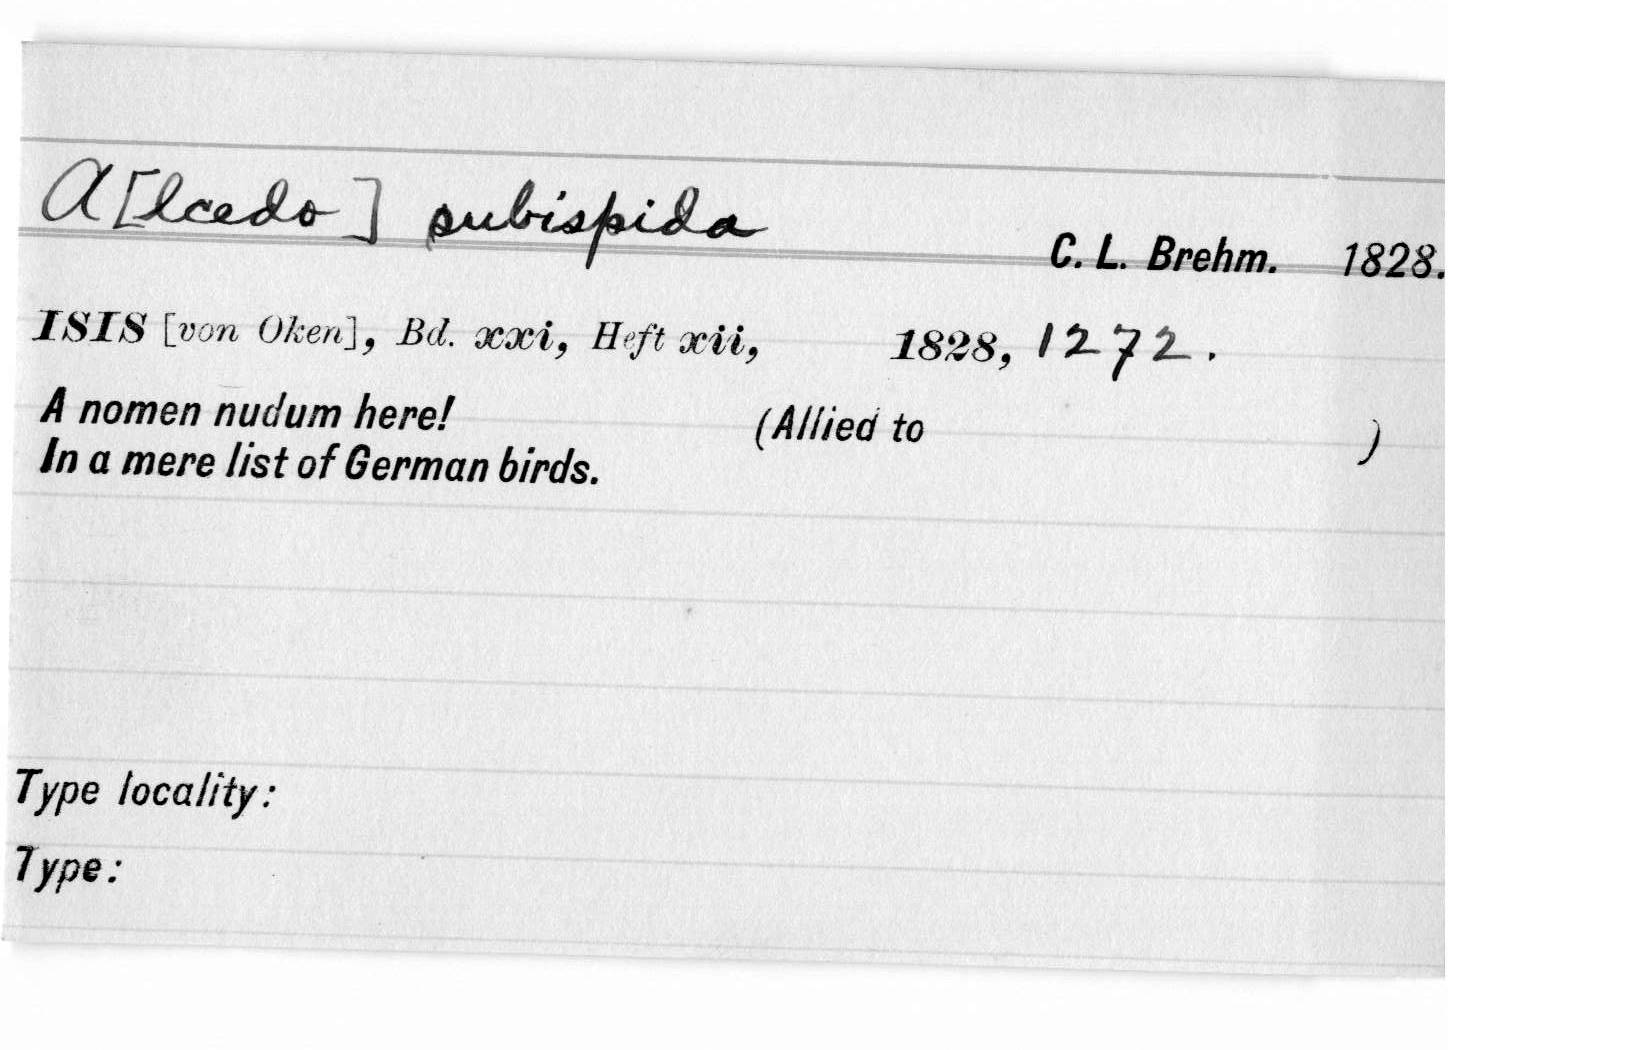 A[lcedo] subispida
C. L. Brehm. 1828.
ISIS [von Oken], Bd. xxi, Heft xii, 1828, 1272.
A nomen nudum here! (Allied to )
In a mere list of German birds.
Type locality:
Type: